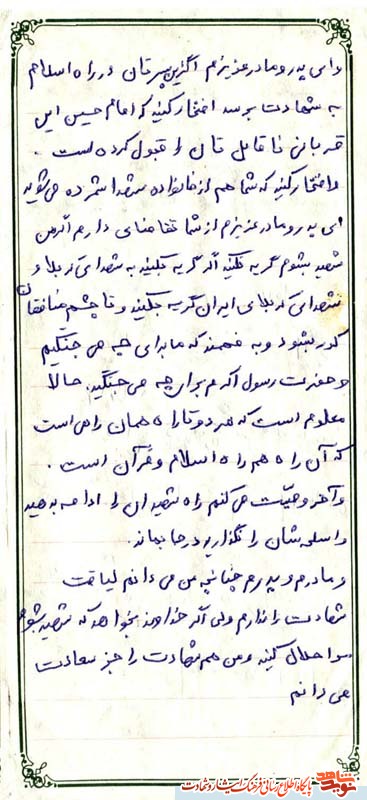 وای پدر و مادر عزیزم اگر این پسرتان در راه اسلام
به شهادت برسد افتخار کنید که امام حسین این
قربانی ناقابل تان را قبول کرده است.
و افتخار کنید که شما هم از خانواده شهدا شمرده می شوید
ای پدر و مادر عزیزم از شما تقاضای دارم اگر من
شهید بشوم گریه نکنید اگر گریه بکنید به شهدای کربلا و
شهدای کربلای ایران گریه بکنید و تا چشم منافقان
کور بشود و به فهمند که ما برای چه می جنگیم
و حضرت رسول اکرم برای چه می جنگید. حالا
معلوم است که هر دو تا راه همان راهی است
که آن راه هم راه اسلام و قرآن است.
و آخر وصیت می کنم راه شهیدان را ادامه بدهید
و اسلحه شان را نگذارید در جا بماند.
و مادرم و پدرم چنانچه من می دانم لیاقت
شهادت را ندارم ولی اگر خداوند بخواهد که شهید بشوم
مرا حلال کنید و من هم شهادت را جز سعادت
می دانم
نوید شاهد
پایگاه اطلاع رسانی فرهنگ ایثار و شهادت